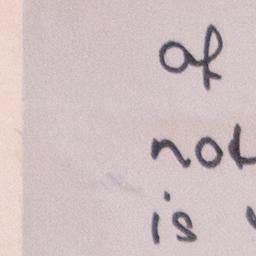 of
not
is